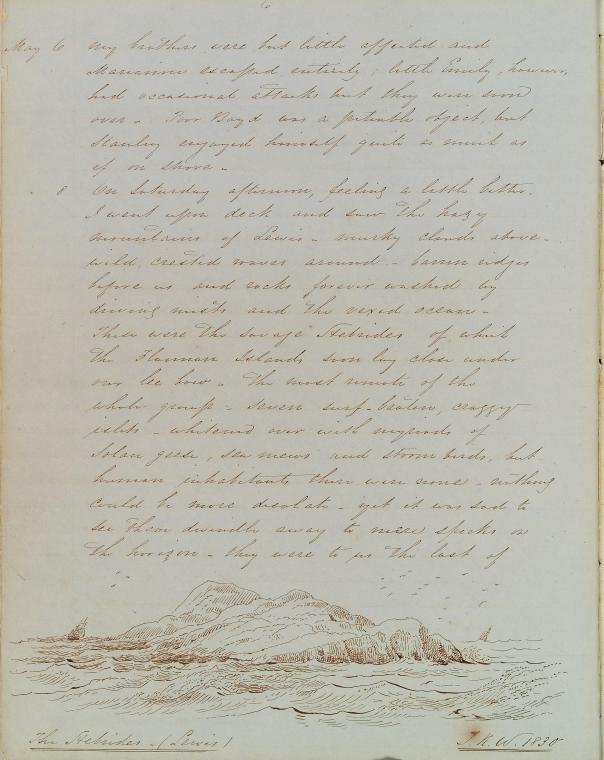 May 6 my brothers were but little affected and
Marianne escaped entirely; little Emily, however,
had occasional attacks but they were soon
over - Poor Boyd was a pitiable object, but
Stanley enjoyed himself quite as much as
if on shore -
8 On Saturday afternoon, feeling a little better,
I went upon deck and saw the hazy
mountains of Lewis - murky clouds above -
wild crested waves around - barren ridges
before us and rocks forever washed by
driving mists and the vexed ocean -
These were the savage Hebrides of which
the Flannan Islands soon lay close under
our lee bow - The most remote of the
whole group - seven surf-beaten, craggy
islets - whitened over with myriads of
Solan geese, sea mews and storm birds, but
human inhabitants there were none - nothing
could be more desolate - yet it was sad to
see them dwindle away to mere specks on
the horizon - they were to us the last of
The Hebrides - (Lewis)
K. W. 1830